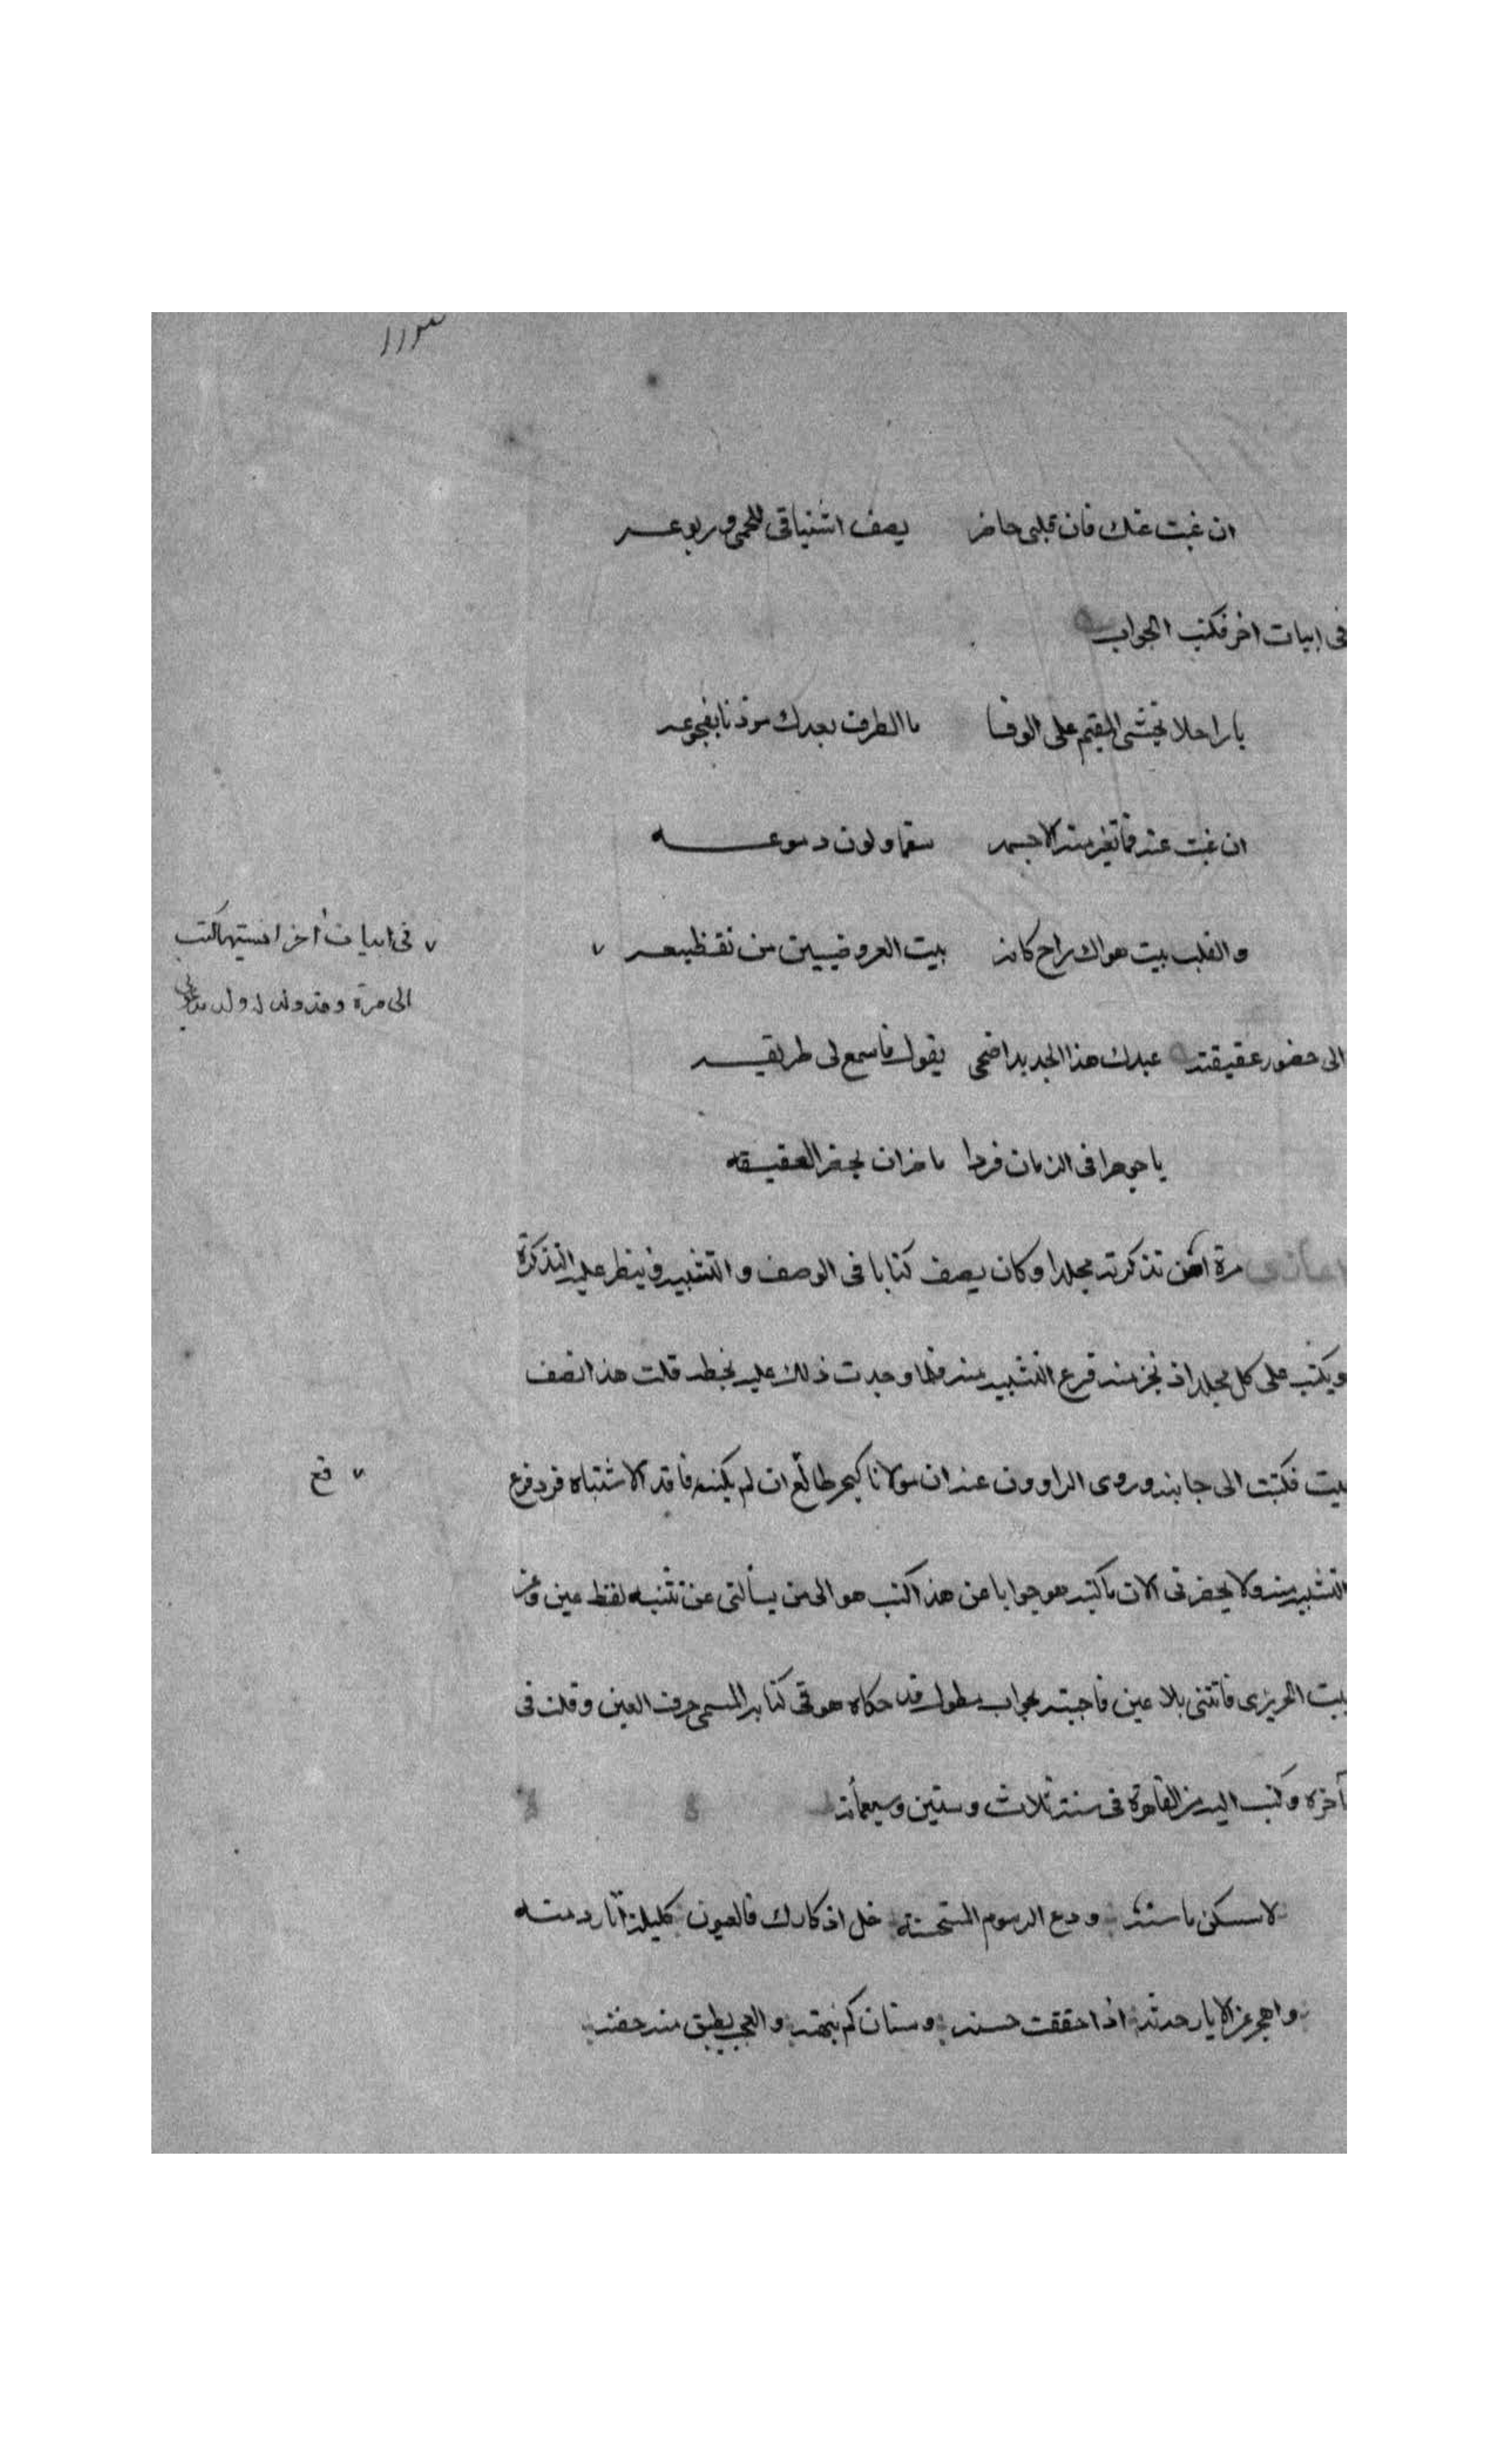 ان غبت عنك فان قلبى حاضر يصف اشتياقى للحمى وربوعه
فى ابيات اخر فكتب الجواب
يا راحلا تخشى المقيم على الوفا ما الطرف بعدك موذنا بفجوعه
ان غبت عنه فما تغير منه الا جسمه سقما ولون دموعه
والقلب بيت هواك راح كانه بيت العروضيين من تقطيعه
فى ابيات أخر انسيتها كتب
الى مرة وقد ولد له ولد
الى حضور عقيقته عبدك هذا الجديد اضحى يقول فاسمع لى طريقه
يا جوهرا فى الزمان فردا ما خزان لجفر العقيقه
مرة من تذكرته مجلدا وكان يصف كتابا فى الوصف والتشبيه فينظر عليه التذكرة
ويكتب على كل مجلد اذ نجز منه فرغ التشبيه منه فلما وجدت ذلك عليه بخطه قلت هذا نصف
بيت فكتبت الى جانبه وروى الراوون عنه ان مولانا كبحر طالع ان لم يكنه فاقد الاشتباه فرد فرع
فع
التشبيه منه ولا يحضرنى الان ما كتبه هو جوابا عن هذا كتب هو الى من يسألنى عن تثنيه لفظ عين وعن
بيت الحريرى فانثنى بلا عين فاجبته بجواب مطول قد حكاه هو فى كتابه المسمى حرف العين وقلت فى
آخره وكتب اليه من القاهرة فى سنة ثلاث وستين وسبعمأته
ودع الرسوم المستحسنة خل اذكارك فالعيون كليلة آثار دمنه
واهجر اذا حققت حسنه وسنان كم نبهته والعجب يطبق منه جفنه